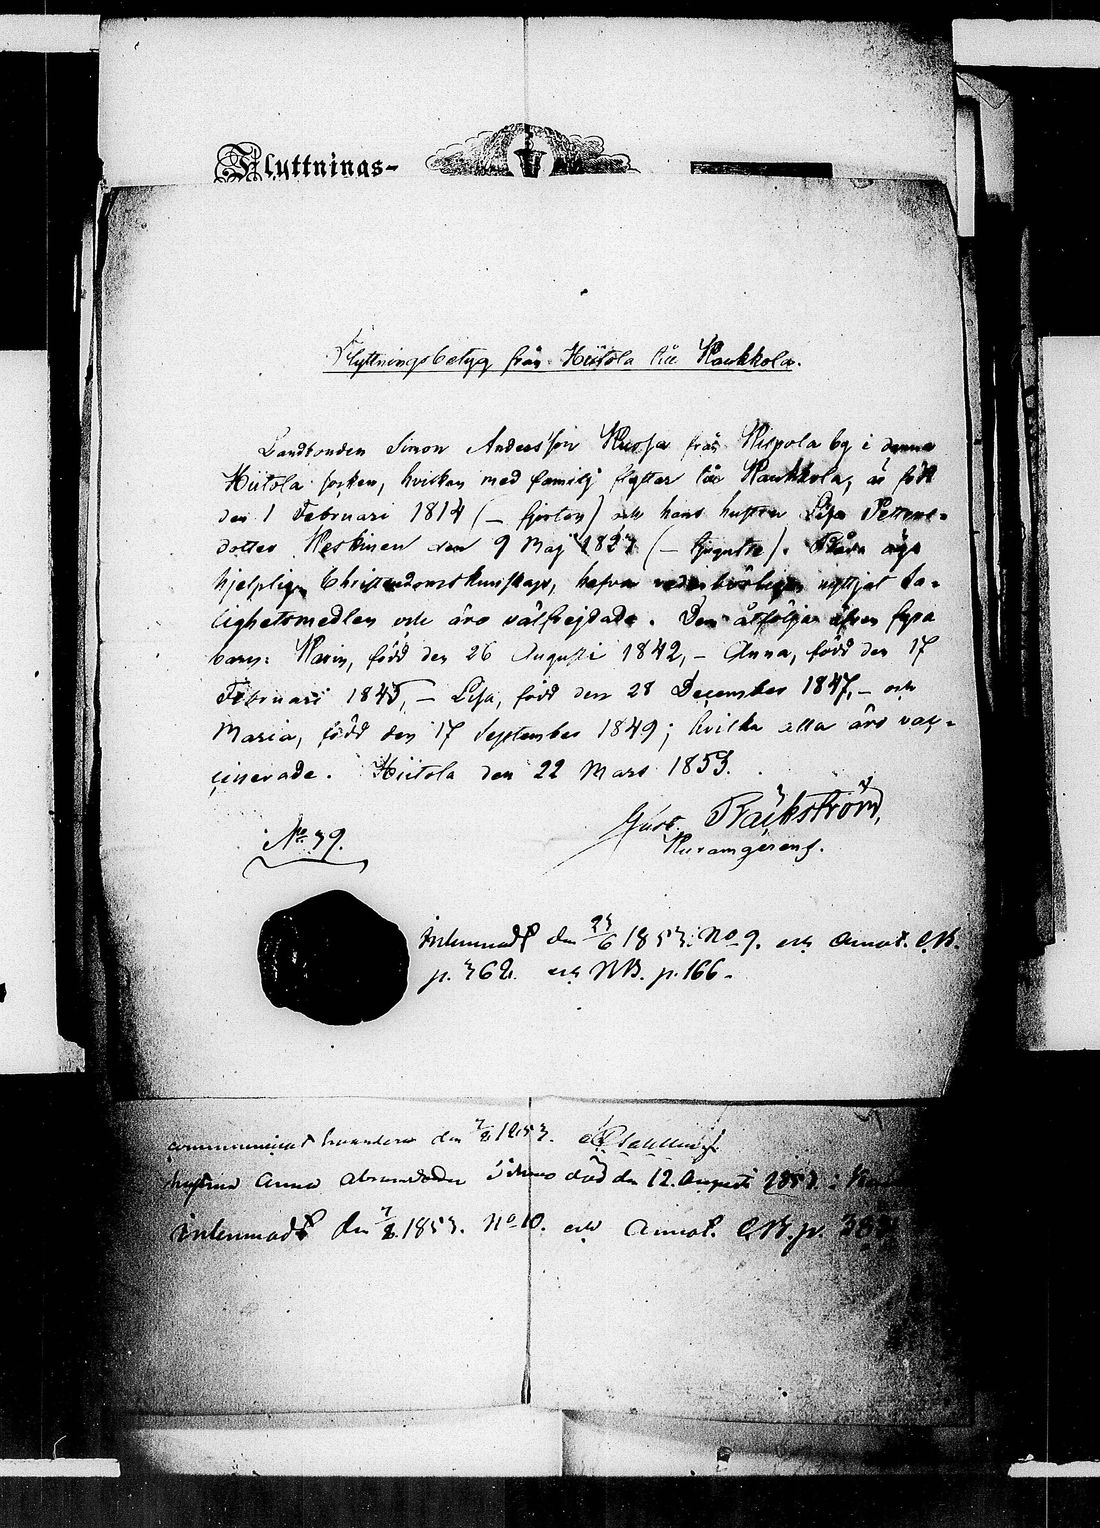 Flyttnings-
Flyttningsbetyg från Hiitola till Kaukkola.
Landbonden Simon Andersson Kuosa från Kispola by i denna
Hiitola socken, hvilken med familj flyttar till Kaukkola, är född
den 1 Februari 1814 (– fjorton) och hans hustru Lisa Petters-
dotter Heskinen den 9 Maj 1823 (– tjugutre). Båda äga
hjelplig Christendomskunskap, hafva nyttjat Sa-
lighetsmedlen och äro välfrejdade. Dem åtfölja äfven fyra
barn: Karin, född den 26 Augusti 1842, – Anna, född den 17
Februari 1845, – Lisa, född den 28 December 1847, – och
Maria, född den 17 September 1849; hvilka alla äro vac-
cinerade. Hiitola den 22 Mars 1853.
Gust. Bäckström,
No 39.
Inlemnadt den 1853. No 9. och annot. C.B.
p. 362. och p. 166.
den 7/8 1853.
Anna död den 12. Augusti 1853.
Inlemnadt den 7/8 1853. No 10. och annot. C.B. p.